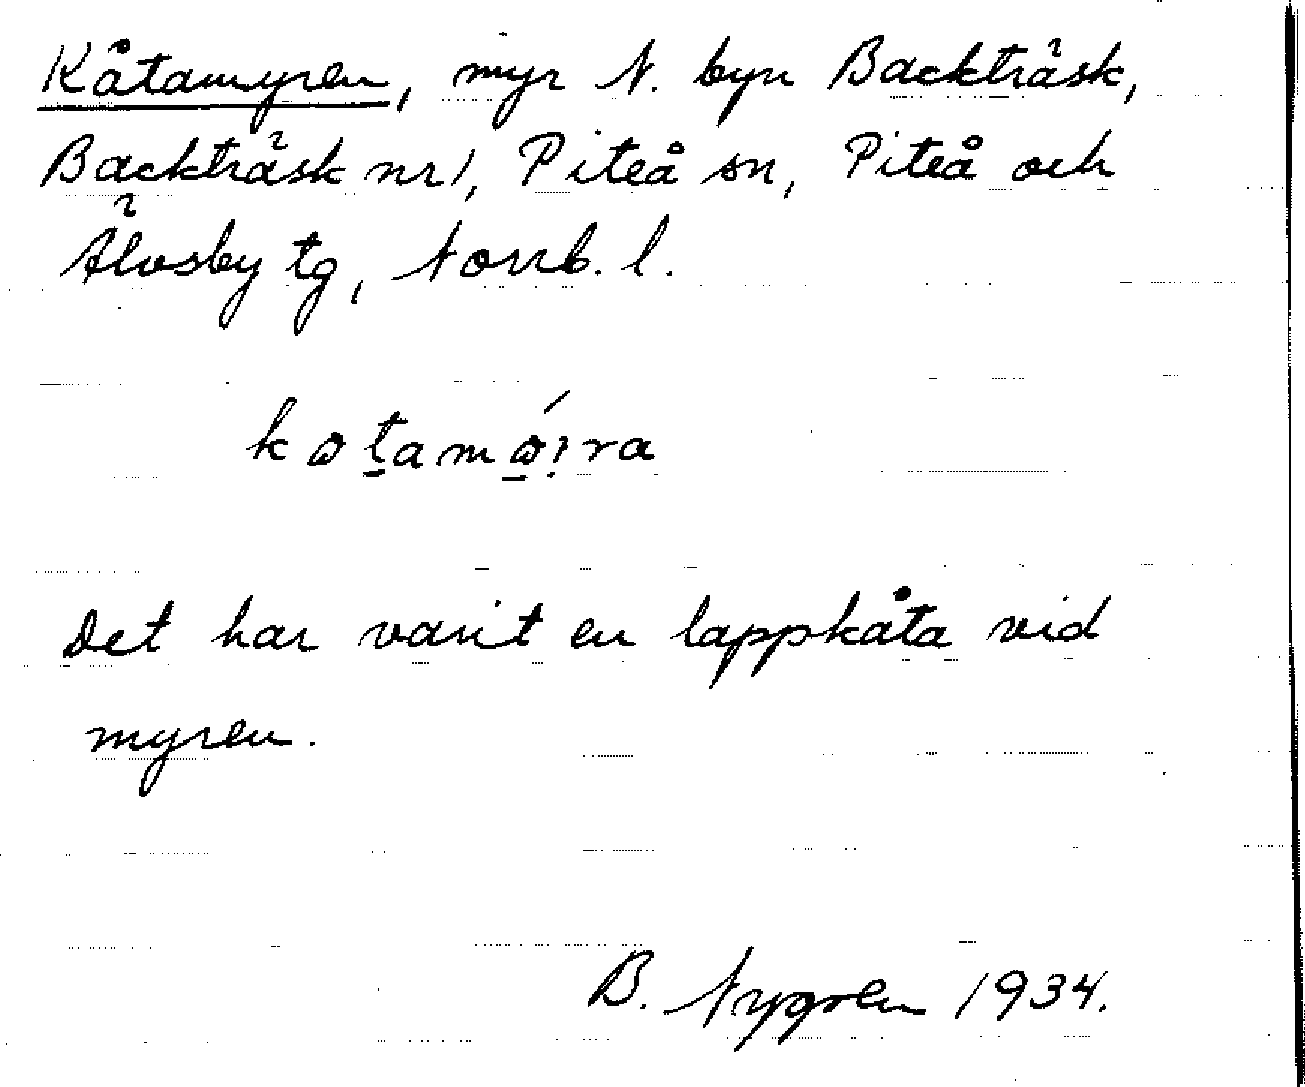 Kåtamyren, myr N. byn Backträsk,
Backträsk nr 1, Piteå sn, Piteå och
Älvsby tg, Norrb. l.
Det har varit en lappkåta vid
myren.
B. Nygren 1934.